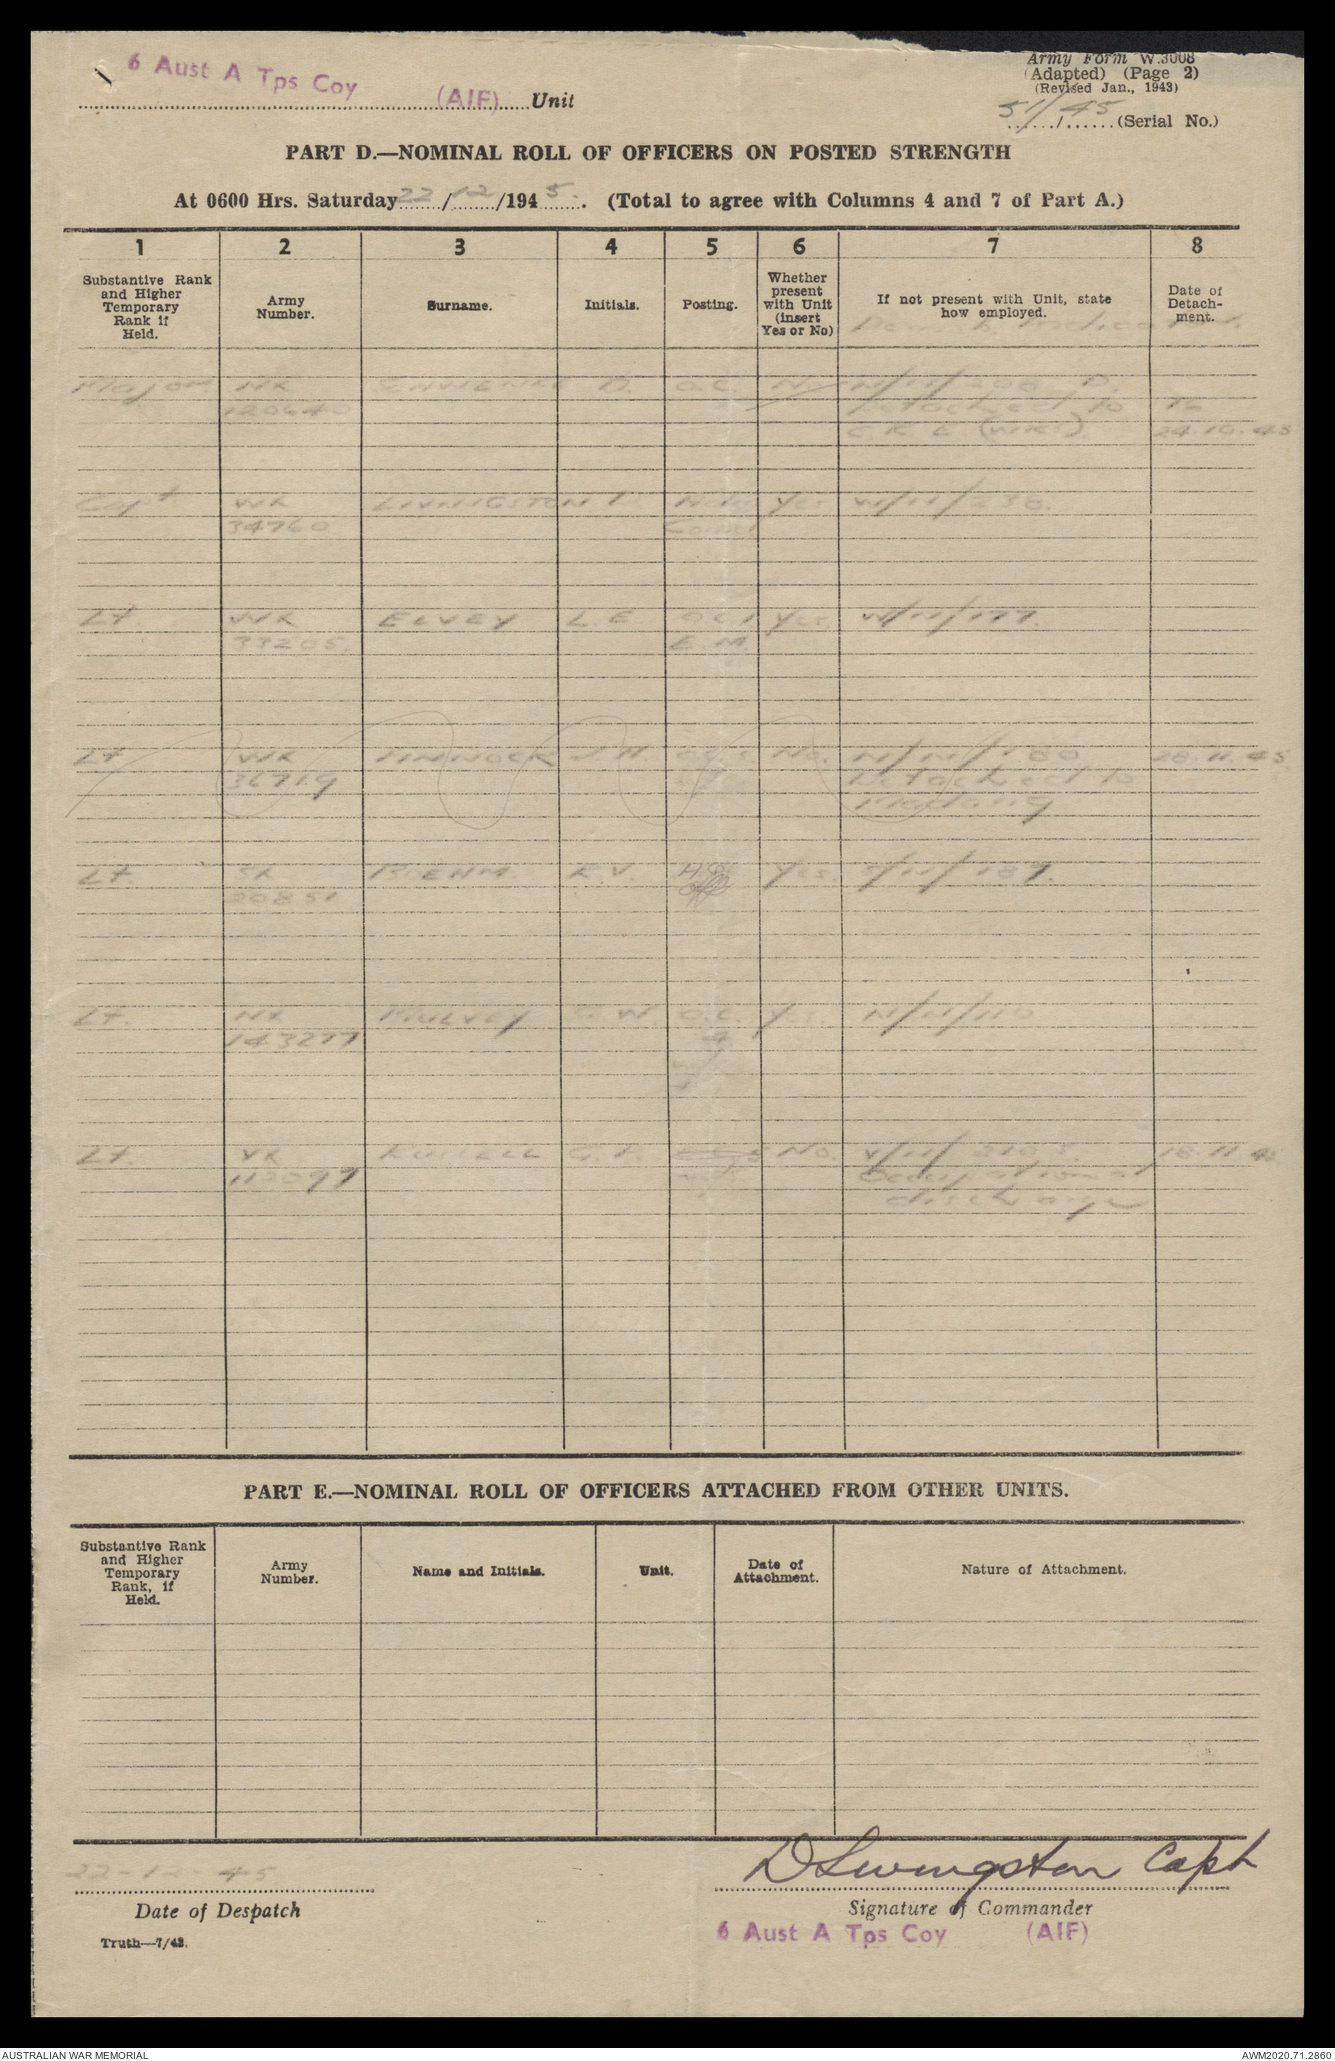 6 Aust A Tps Coy (AIF) Unit
Army Form W.3008
(Adapted) (Page 2)
(Revised Jan., 1943)
51/45 (Serial No.)
PART D.—NOMINAL ROLL OF OFFICERS ON POSTED STRENGTH
At 0600 Hrs. Saturday 22/12/1945. (Total to agree with Columns 4 and 7 of Part A.)
1 2 3 4 5 6 7 8
Substantive Rank and Higher Temporary Rank if Held.
Army Number.
Surname.
Initials.
Posting.
Whether present with Unit (insert Yes or No)
If not present with Unit, state how employed.
Date of Detachment.
Major NX D. O.C. N/11/208
120640 detached to
C.R.E. (Wks) 24.10.45
Capt WX LIVINGSTON Yes W/11/238.
34760
Lt WX ELVEY L.E. Yes. W/11/177.
33205.
Lt PINNOCK J.H. No. 180 28.11.45
36719 Detached to
Madang
Lt. SX ROEHM. K.V. Yes. S/11/187.
20851
Lt. NX MULVEY W O.C. Yes. N/11/110
143277 4
Lt. VX RUSSELL G.F. No. V/11/210 18.11.45
112097 Occupation at
discharge
PART E.—NOMINAL ROLL OF OFFICERS ATTACHED FROM OTHER UNITS.
Substantive Rank and Higher Temporary Rank, if Held.
Army Number.
Name and Initials.
Unit.
Date of Attachment.
Nature of Attachment.
22-12-45
D Livingston Capt
Date of Despatch
Signature of Commander
6 Aust A Tps Coy (AIF)
Truth—7/43.
AUSTRALIAN WAR MEMORIAL
AWM2020.71.2860